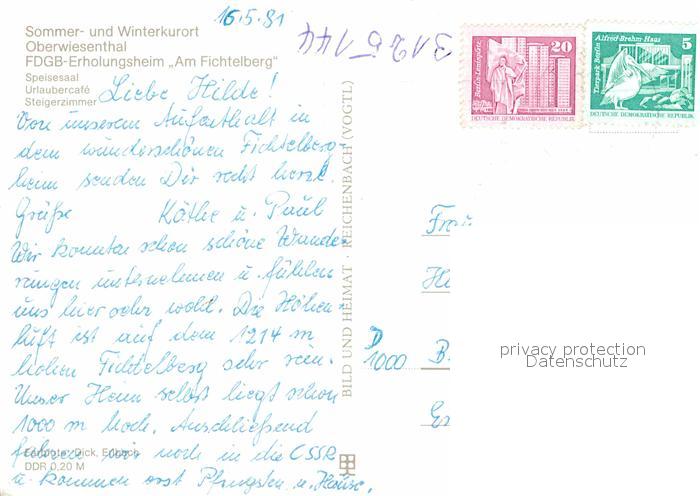 16.5.81
Sommer- und Winterkurort
Oberwiesenthal
FDGB-Erholungsheim „Am Fichtelberg"
Speisesaal
Urlaubercafé
Steigerzimmer
3125144
Liebe Hilde!
Von unserem Aufenthalt in
dem wunderschönen Fichtelberg-
heim senden Dir recht herzl.
Grüße Käthe u. Paul
Wir konnten schon schöne Wande-
rungen unternehmen u. fühlen
uns hier sehr wohl. Die Höhen-
luft ist auf dem 1214 m
hohen Fichtelberg sehr rein.
Unser Heim selbst liegt schon
1000 m hoch. Anschließend
fahren wir noch in die CSSR
u. kommen erst Pfingsten n. Hause.
Farbfoto: Dick, Erlbach
DDR 0,20 M
BILD UND HEIMAT · REICHENBACH (VOGTL)
Berlin-Leninplatz
20
DEUTSCHE DEMOKRATISCHE REPUBLIK
Tierpark Berlin
Alfred-Brehm-Haus
5
DEUTSCHE DEMOKRATISCHE REPUBLIK
Frau
He
D
1000 B.
privacy protection
Datenschutz